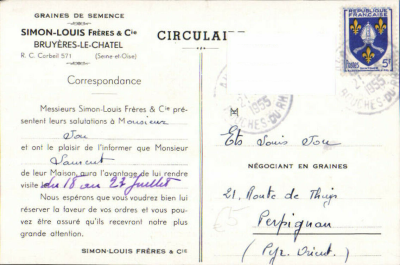 GRAINES DE SEMENCE
SIMON-LOUIS FRÈRES & Cie
BRUYÈRES-LE-CHATEL
R. C. Corbeil 571 (Seine-et-Oise)
CIRCULAI
Correspondance
Messieurs Simon-Louis Frères & Cie
présentent leurs salutations à Monsieur
Jou
et ont le plaisir de l'informer que Monsieur
Laurent
de leur Maison aura l'avantage de lui rendre
visite du 18 au 23 Juillet
Nous espérons que vous voudrez bien lui
réserver la faveur de vos ordres et vous pouvez
être assuré qu'ils recevront notre plus
grande attention.
SIMON-LOUIS FRÈRES & Cie
RÉPUBLIQUE
FRANÇAISE
5F
1955
BOUCHES-DU-RH
Ets Louis Jou
NÉGOCIANT EN GRAINES
21, Route de Thuir
Perpignan
(Pyr. Orient.)